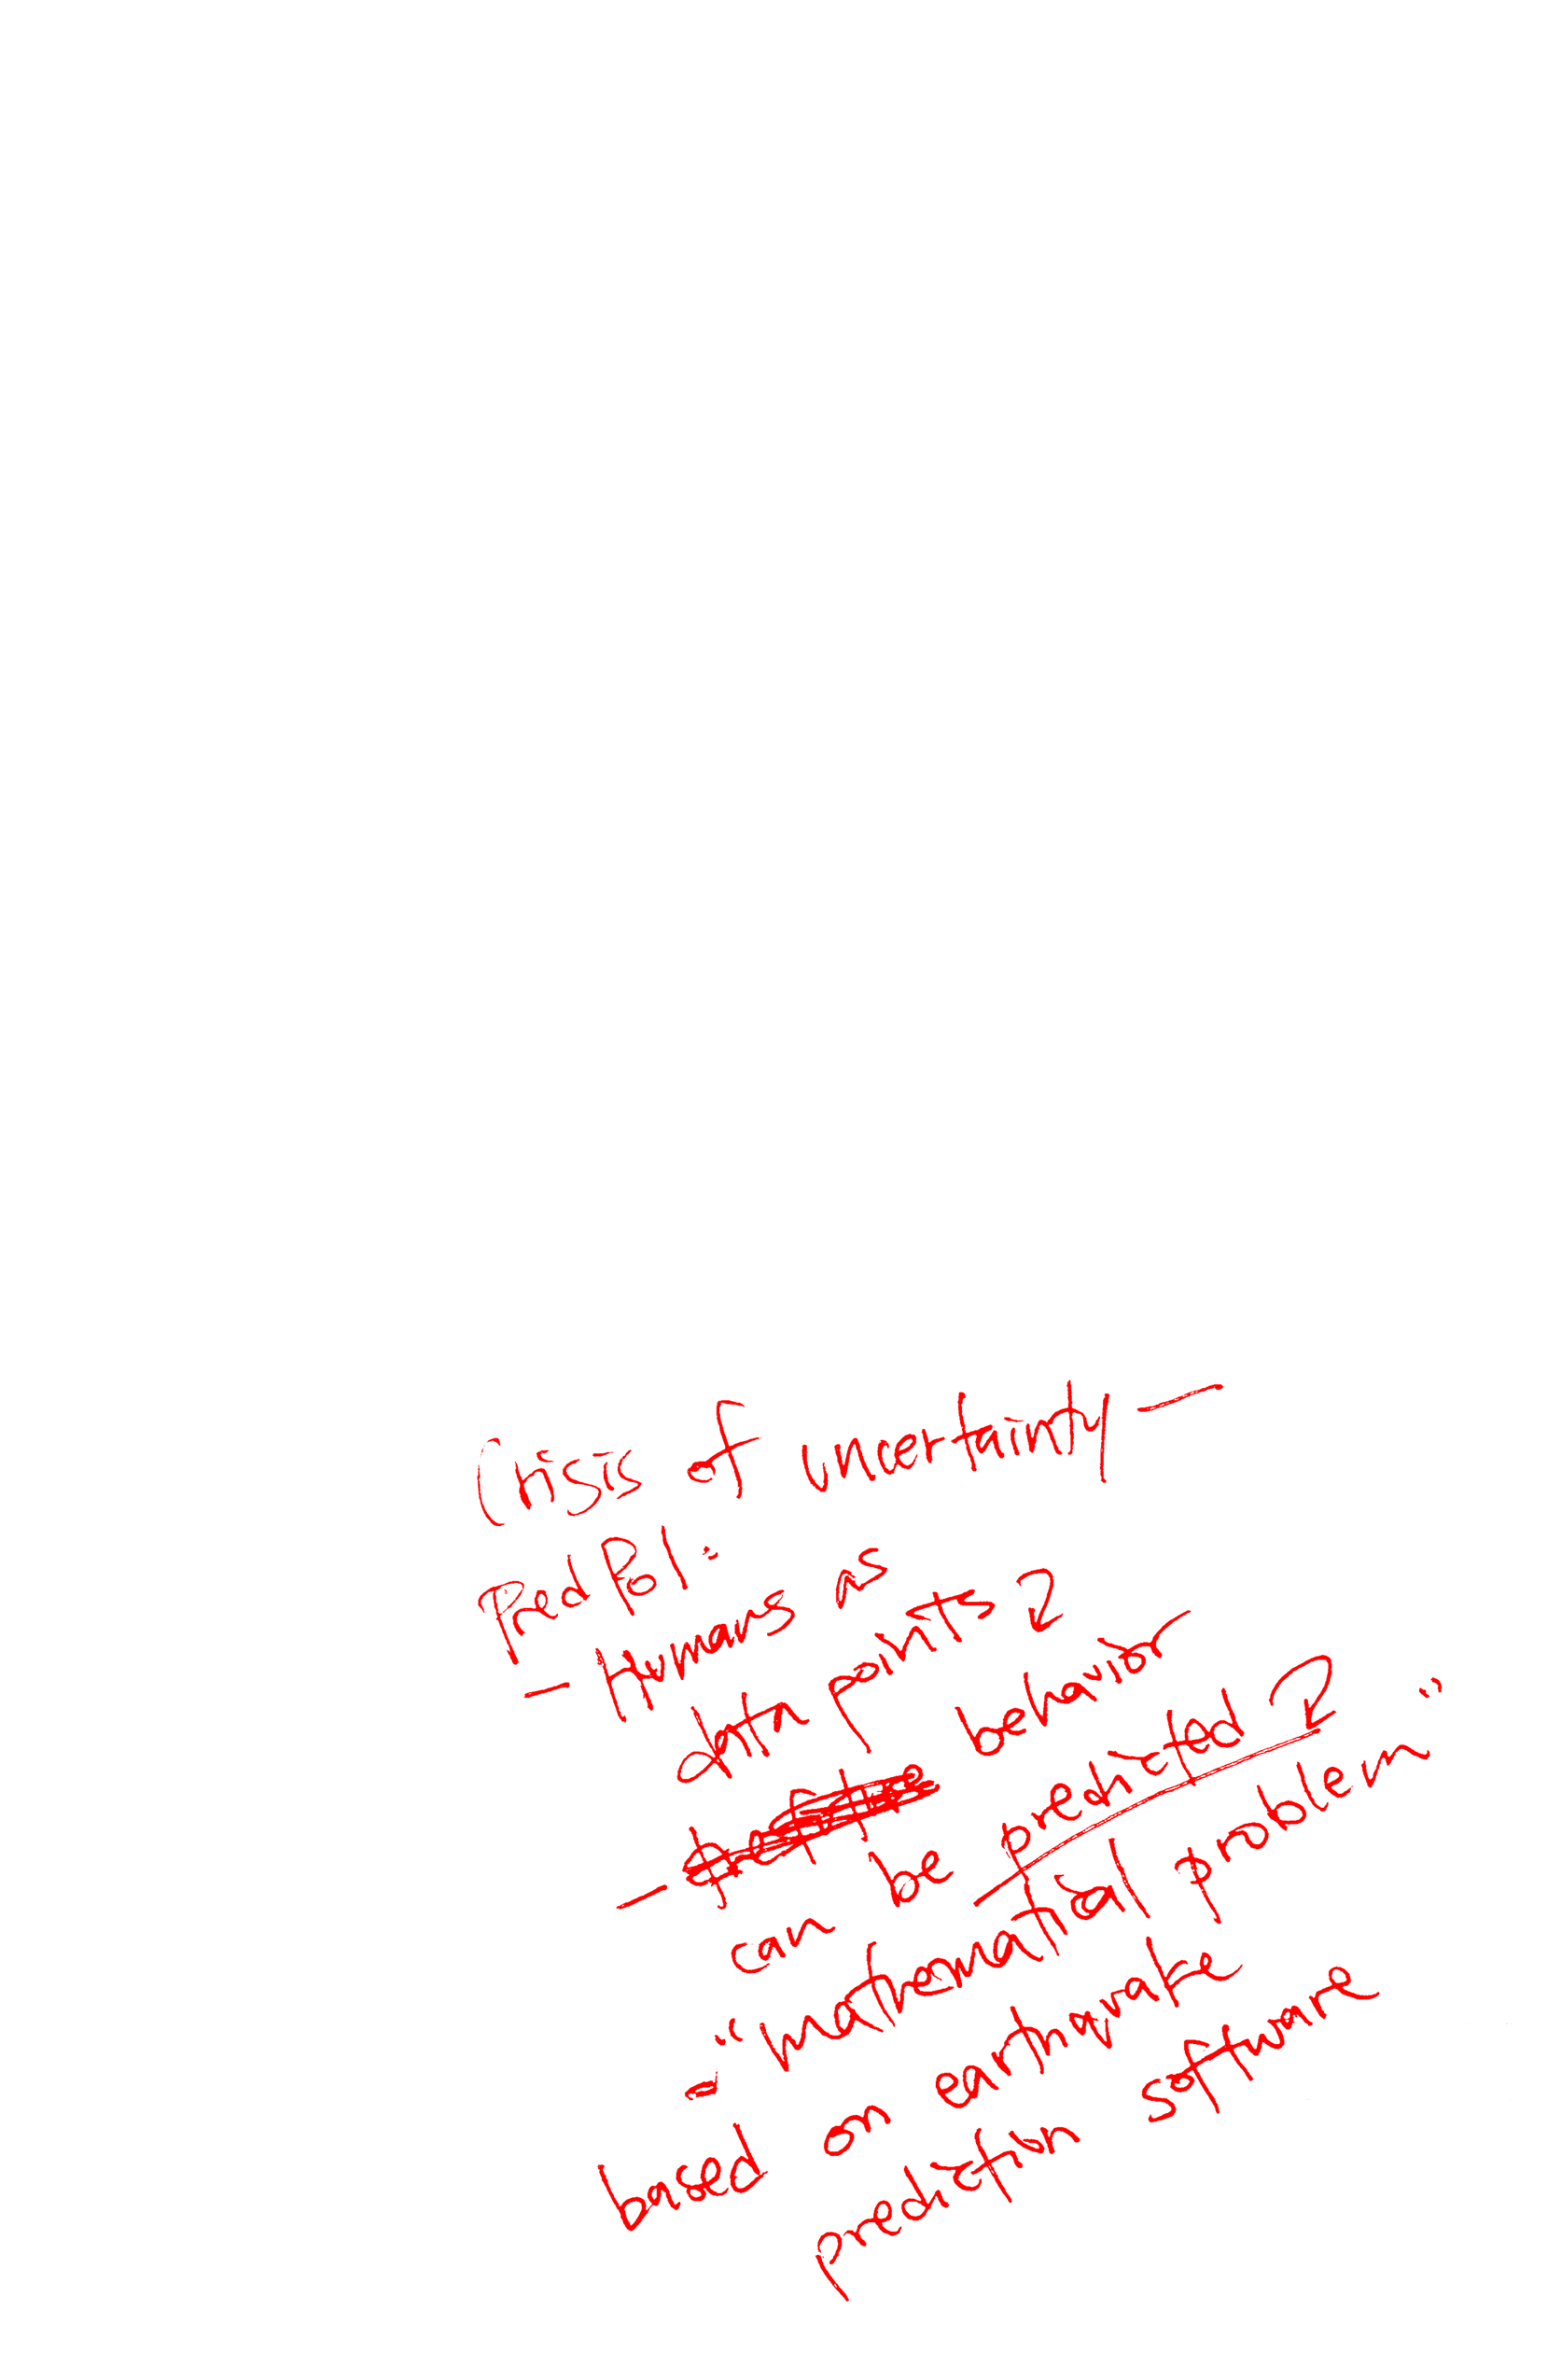 Crisis of uncertainty —
Pred Pol:
- Humans as
data points?
- behavior
can be predicted?
- "mathematical problem"
based on earthquake
prediction software